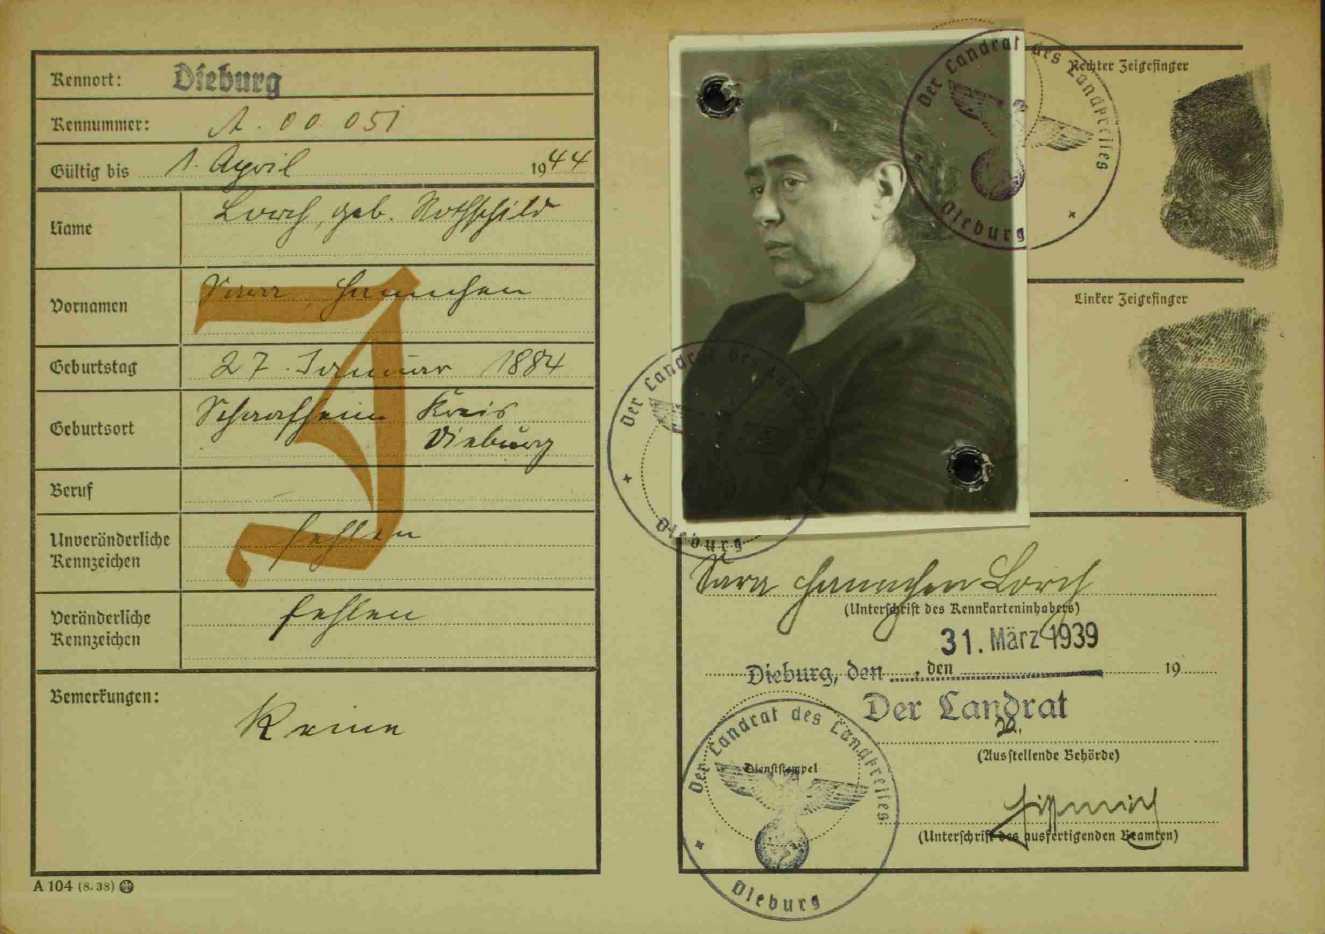 Kennort: Dieburg
Kennummer: A. 00 051
Gültig bis 1. April 1944
Name Lorch, geb. Rothschild
Vornamen Sara, Hannchen
Geburtstag 27. Januar 1884
Geburtsort Schaafheim Kreis
Dieburg
Beruf
Unveränderliche
Kennzeichen fehlen
Veränderliche
Kennzeichen fehlen
Bemerkungen:
Keine
J
A 104 (8. 38)
Der Landrat des Landkreises
Dieburg
Rechter Zeigefinger
Linker Zeigefinger
Der Landrat des
Dieburg
Sara Hannchen Lorch
(Unterschrift des Kennkarteninhabers)
31. März 1939
Dieburg, den ...., den 19
Der Landrat
(Ausstellende Behörde)
Der Landrat des Landkreises
Dienststempel
Dieburg
(Unterschrift des ausfertigenden Beamten)